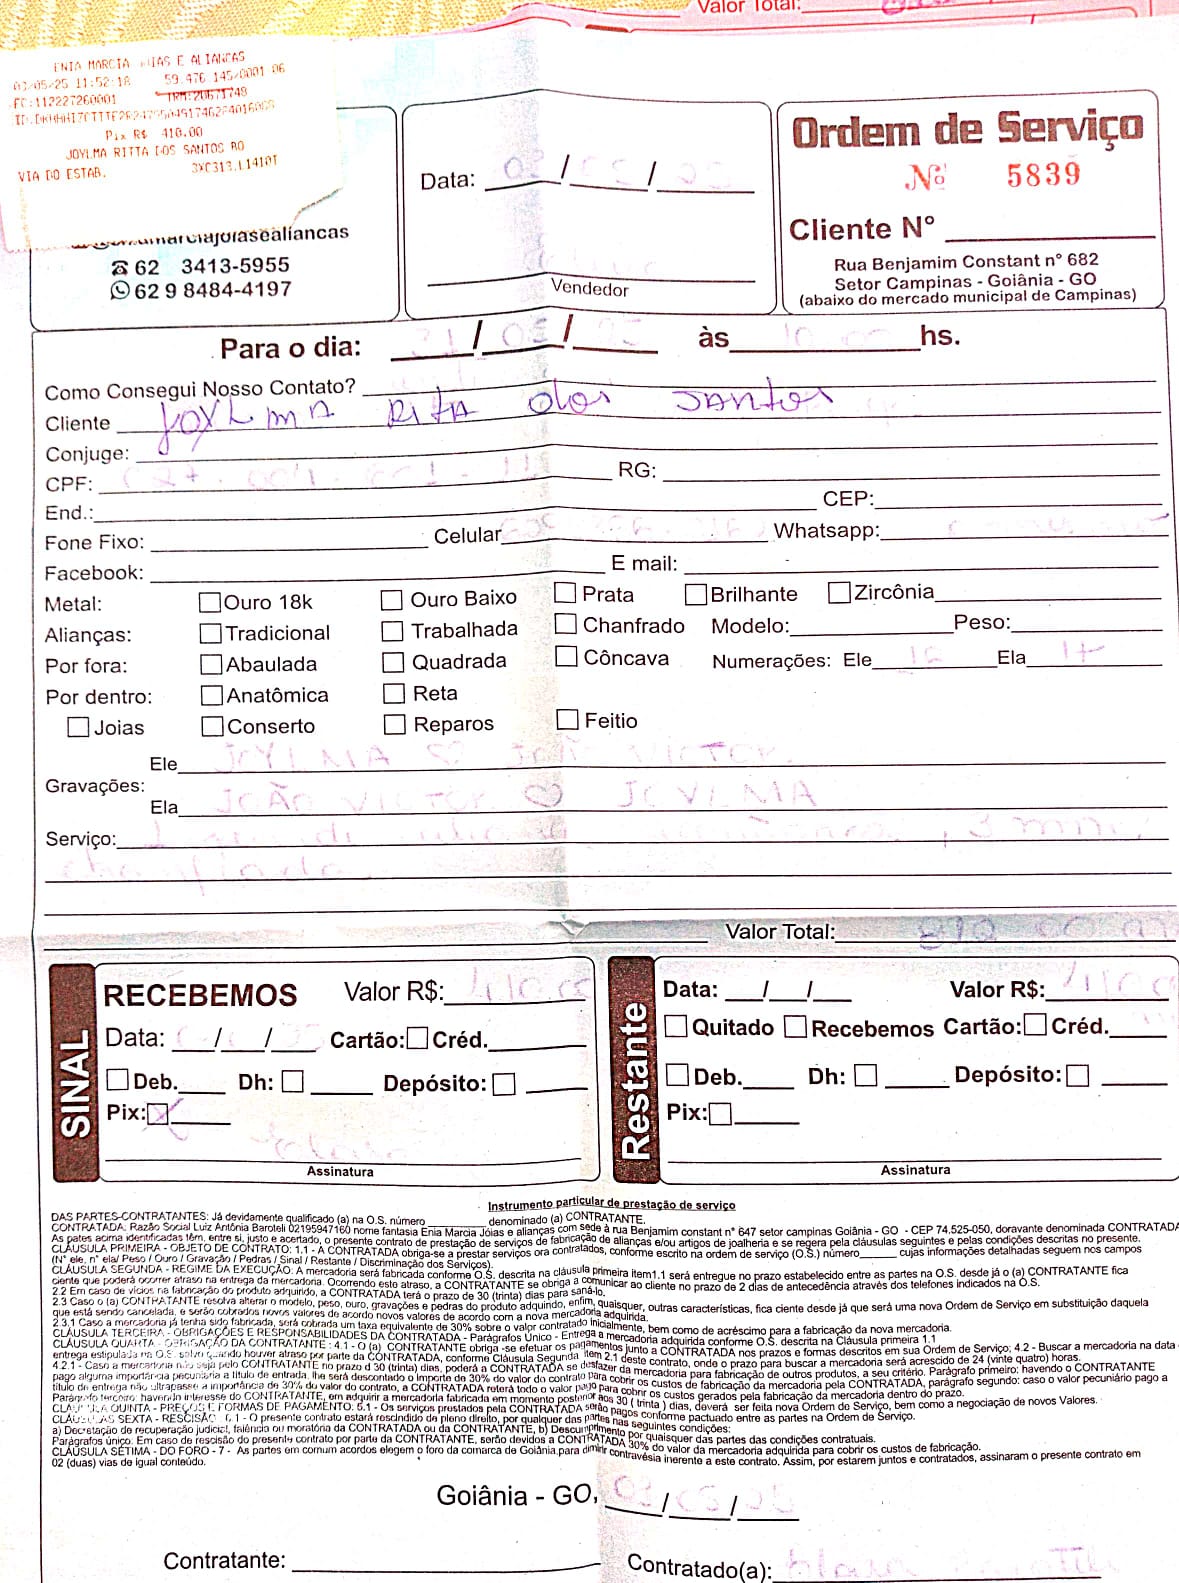 Valor Total:
ENIA MARCIA JOIAS E ALIANCAS
03/05/25 11:52:18 59.476.145/0001-06
FC:112227260001 TRM:20671748
Pix R$ 410.00
JOYLMA RITTA DOS SANTOS RO
VIA DO ESTAB.
marciajoiasealiancas
62 3413-5955
62 9 8484-4197
Data: 03/05/25
Vendedor
Ordem de Serviço
Nº 5839
Cliente N°
Rua Benjamim Constant n° 682
Setor Campinas - Goiânia - GO
(abaixo do mercado municipal de Campinas)
Para o dia: 31/05/25 às 10:00 hs.
Como Consegui Nosso Contato?
Cliente JOYLMA RITA dos SANTOS
Conjuge:
CPF: RG:
End.: CEP:
Fone Fixo: Celular Whatsapp:
Facebook: E mail:
Metal: Ouro 18k Ouro Baixo Prata Brilhante Zircônia
Alianças: Tradicional Trabalhada Chanfrado Modelo: Peso:
Por fora: Abaulada Quadrada Côncava Numerações: Ele 16 Ela 17
Por dentro: Anatômica Reta
Joias Conserto Reparos Feitio
Ele JOYLMA ♡ JOÃO VICTOR
Gravações:
Ela JOÃO VICTOR ♡ JOYLMA
Serviço: 3 mm
Valor Total:
SINAL
RECEBEMOS Valor R$: 410,00
Data: / / Cartão: Créd.
Deb. Dh: Depósito:
Pix: X
Assinatura
Restante
Data: / / Valor R$: 410,0
Quitado Recebemos Cartão: Créd.
Deb. Dh: Depósito:
Pix:
Assinatura
Instrumento particular de prestação de serviço
DAS PARTES-CONTRATANTES: Já devidamente qualificado (a) na O.S. número denominado (a) CONTRATANTE.
CONTRATADA: Razão Social Luiz Antônia Baroteli 02195947160 nome fantasia Enia Marcia Jóias e alianças com sede à rua Benjamim constant n° 647 setor campinas Goiânia - GO - CEP 74.525-050, doravante denominada CONTRATADA
As pates acima identificadas têm, entre si, justo e acertado, o presente contrato de prestação de serviços de fabricação de alianças e/ou artigos de joalheria e se regera pela cláusulas seguintes e pelas condições descritas no presente.
CLÁUSULA PRIMEIRA - OBJETO DE CONTRATO: 1.1 - A CONTRATADA obriga-se a prestar serviços ora contratados, conforme escrito na ordem de serviço (O.S.) número cujas informações detalhadas seguem nos campos
(N° ele, n° ela/ Peso / Ouro / Gravação / Pedras / Sinal / Restante / Discriminação dos Serviços).
CLÁUSULA SEGUNDA - REGIME DA EXECUÇÃO: A mercadoria será fabricada conforme O.S. descrita na cláusula primeira item1.1 será entregue no prazo estabelecido entre as partes na O.S. desde já o (a) CONTRATANTE fica
ciente que poderá ocorrer atraso na entrega da mercadoria. Ocorrendo este atraso, a CONTRATADA se obriga a comunicar ao cliente no prazo de 2 dias de antecedência através dos telefones indicados na O.S.
2.2 Em caso de vícios na fabricação do produto adquirido, a CONTRATADA terá o prazo de 30 (trinta) dias para saná-lo.
2.3 Caso o (a) CONTRATANTE resolva alterar o modelo, peso, ouro, gravações e pedras do produto adquirido, enfim, quaisquer, outras características, fica ciente desde já que será uma nova Ordem de Serviço em substituição daquela
que está sendo cancelada, e serão cobrados novos valores de acordo novos valores de acordo com a nova mercadoria adquirida.
2.3.1 Caso a mercadoria já tenha sido fabricada, será cobrada um taxa equivalente de 30% sobre o valor contratado inicialmente, bem como de acréscimo para a fabricação da nova mercadoria.
CLÁUSULA TERCEIRA - OBRIGAÇÕES E RESPONSABILIDADES DA CONTRATADA - Parágrafos Único - Entrega a mercadoria adquirida conforme O.S. descrita na Cláusula primeira 1.1
CLÁUSULA QUARTA - OBRIGAÇÃO DA CONTRATANTE : 4.1 - O (a) CONTRATANTE obriga -se efetuar os pagamentos junto a CONTRATADA nos prazos e formas descritos em sua Ordem de Serviço; 4.2 - Buscar a mercadoria na data
entrega estipulada na O.S. salvo quando houver atraso por parte da CONTRATADA, conforme Cláusula Segunda item 2.1 deste contrato, onde o prazo para buscar a mercadoria será acrescido de 24 (vinte quatro) horas.
4.2.1 - Caso a mercadoria não seja pelo CONTRATANTE no prazo d 30 (trinta) dias, poderá a CONTRATADA se desfazer da mercadoria para fabricação de outros produtos, a seu critério. Parágrafo primeiro: havendo o CONTRATANTE
pago alguma importância pecuniária a título de entrada, lhe será descontado o importe de 30% do valor do contrato para cobrir os custos de fabricação da mercadoria pela CONTRATADA, parágrafo segundo: caso o valor pecuniário pago a
título de entrega não ultrapasse a importância de 30% do valor do contrato, a CONTRATADA reterá todo o valor pago para cobrir os custos gerados pela fabricação da mercadoria dentro do prazo.
Parágrafo terceiro: havendo interesse do CONTRATANTE, em adquirir a mercadoria fabricada em momento posterior aos 30 ( trinta ) dias, deverá ser feita nova Ordem de Serviço, bem como a negociação de novos Valores.
CLÁUSULA QUINTA - PREÇOS E FORMAS DE PAGAMENTO: 5.1 - Os serviços prestados pela CONTRATADA serão pagos conforme pactuado entre as partes na Ordem de Serviço.
CLÁUSULAS SEXTA - RESCISÃO: 6.1 - O presente contrato estará rescindido de pleno direito, por qualquer das partes nas seguintes condições:
a) Decretação de recuperação judicial, falência ou moratória da CONTRATADA ou da CONTRATANTE, b) Descumprimento por quaisquer das partes das condições contratuais.
Parágrafos único. Em caso de rescisão do presente contrato por parte da CONTRATANTE, serão devidos a CONTRATADA 30% do valor da mercadoria adquirida para cobrir os custos de fabricação.
CLÁUSULA SÉTIMA - DO FORO - 7 - As partes em comum acordos elegem o foro da comarca de Goiânia para dimir contravésia inerente a este contrato. Assim, por estarem juntos e contratados, assinaram o presente contrato em
02 (duas) vias de igual conteúdo.
Goiânia - GO, 03/05/25
Contratante: Contratado(a):